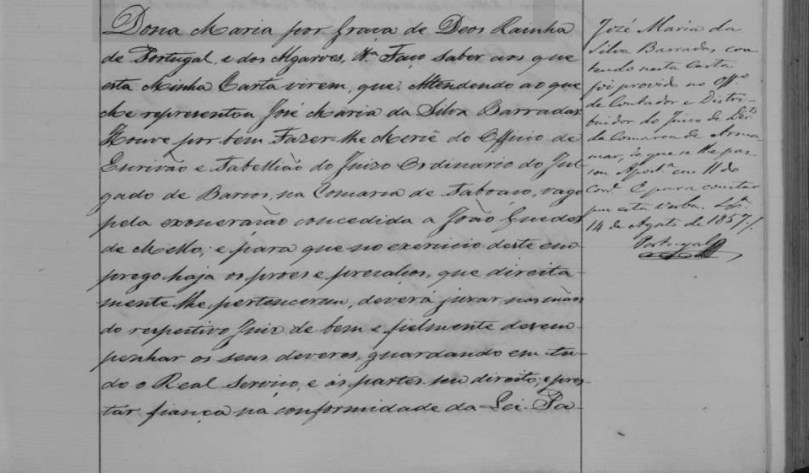 Dona Maria por Graça de Deos Rainha
de Portugal, e dos Algarves, &ª Faço saber aos que
esta Minha Carta virem, que, Attendendo ao que
Me representou José Maria da Silva Barradas
Houve por bem Fazer-lhe Mercê do Officio de
Escrivão e Tabellião do Juizo Ordinario do Jul-
gado de Barcos, na Comarca de Taboaço, vago
pela exoneração concedida a João Guedes
de Mello; e para que no exercicio deste em-
prego haja os proes e precalços, que direita-
mente lhe pertencerem, deverá jurar nas mãos
do respectivo Juiz de bem e fielmente desem-
penhar os seus deveres, guardando em tu-
do o Real Serviço, e ás partes seu direito; e pres-
tar fiança na conformidade da Lei. Pa-
José Maria da
Silva Barradas, con-
teudo nesta Carta
foi provido no Offº
de Contador e Distri-
buidor do Juizo de Dirtº
da Comarca de Arma-
mar, do que se lhe pas-
sou Apostª em 11 do
corrº E para constar
puz esta verba.
14 de Agosto de 1857
Portugal